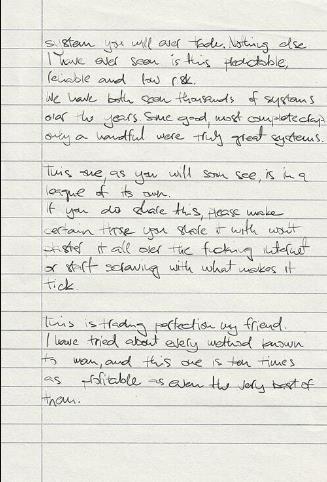 system you will ever trade. Nothing else
I have ever seen is this predictable,
reliable and low risk.
We have both seen thousands of systems
over the years. Some good, most complete crap
only a handful were truly great systems.
This one, as you will soon see, is in a
league of its own.
If you do share this, please make
certain those you share it with won't
plaster it all over the fucking internet
or start screwing with what makes it
tick
This is trading perfection my friend.
I have tried about every method known
to man, and this one is ten times
as profitable as even the very best of
them.